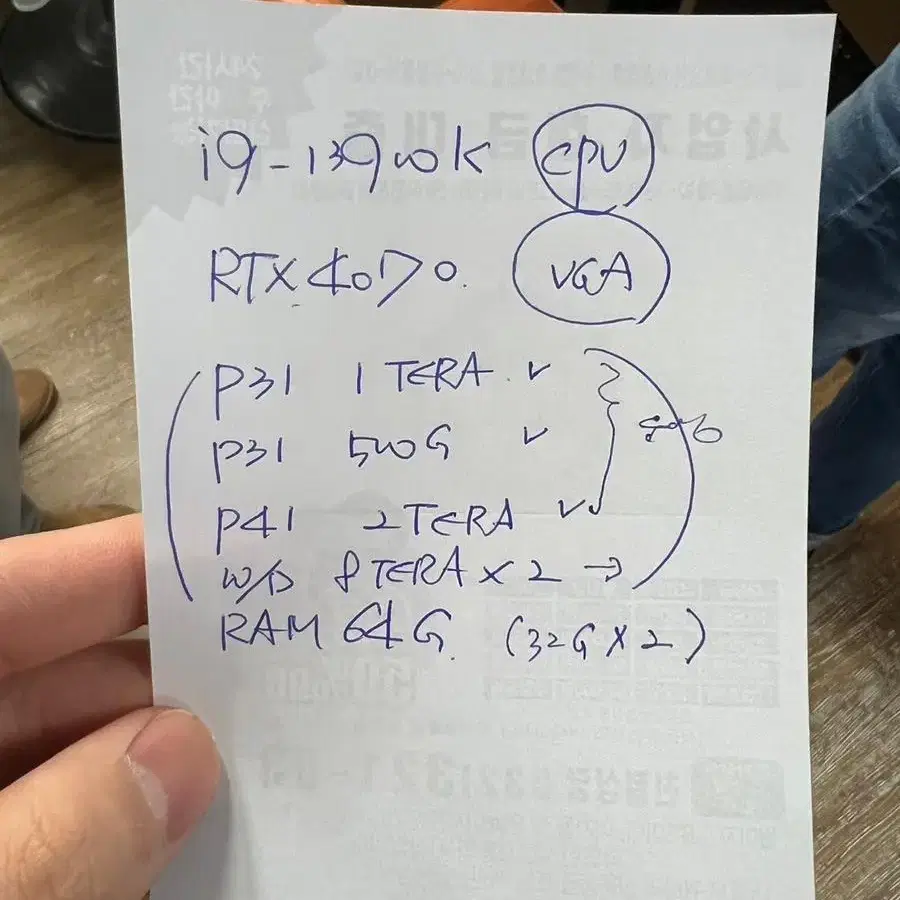 i9-13900K CPU
RTX 4070. VGA
P31 1 TERA. ✓
P31 500G ✓
P41 2 TERA ✓
W/D 8 TERA X 2 →
RAM 64G. (32G X 2)